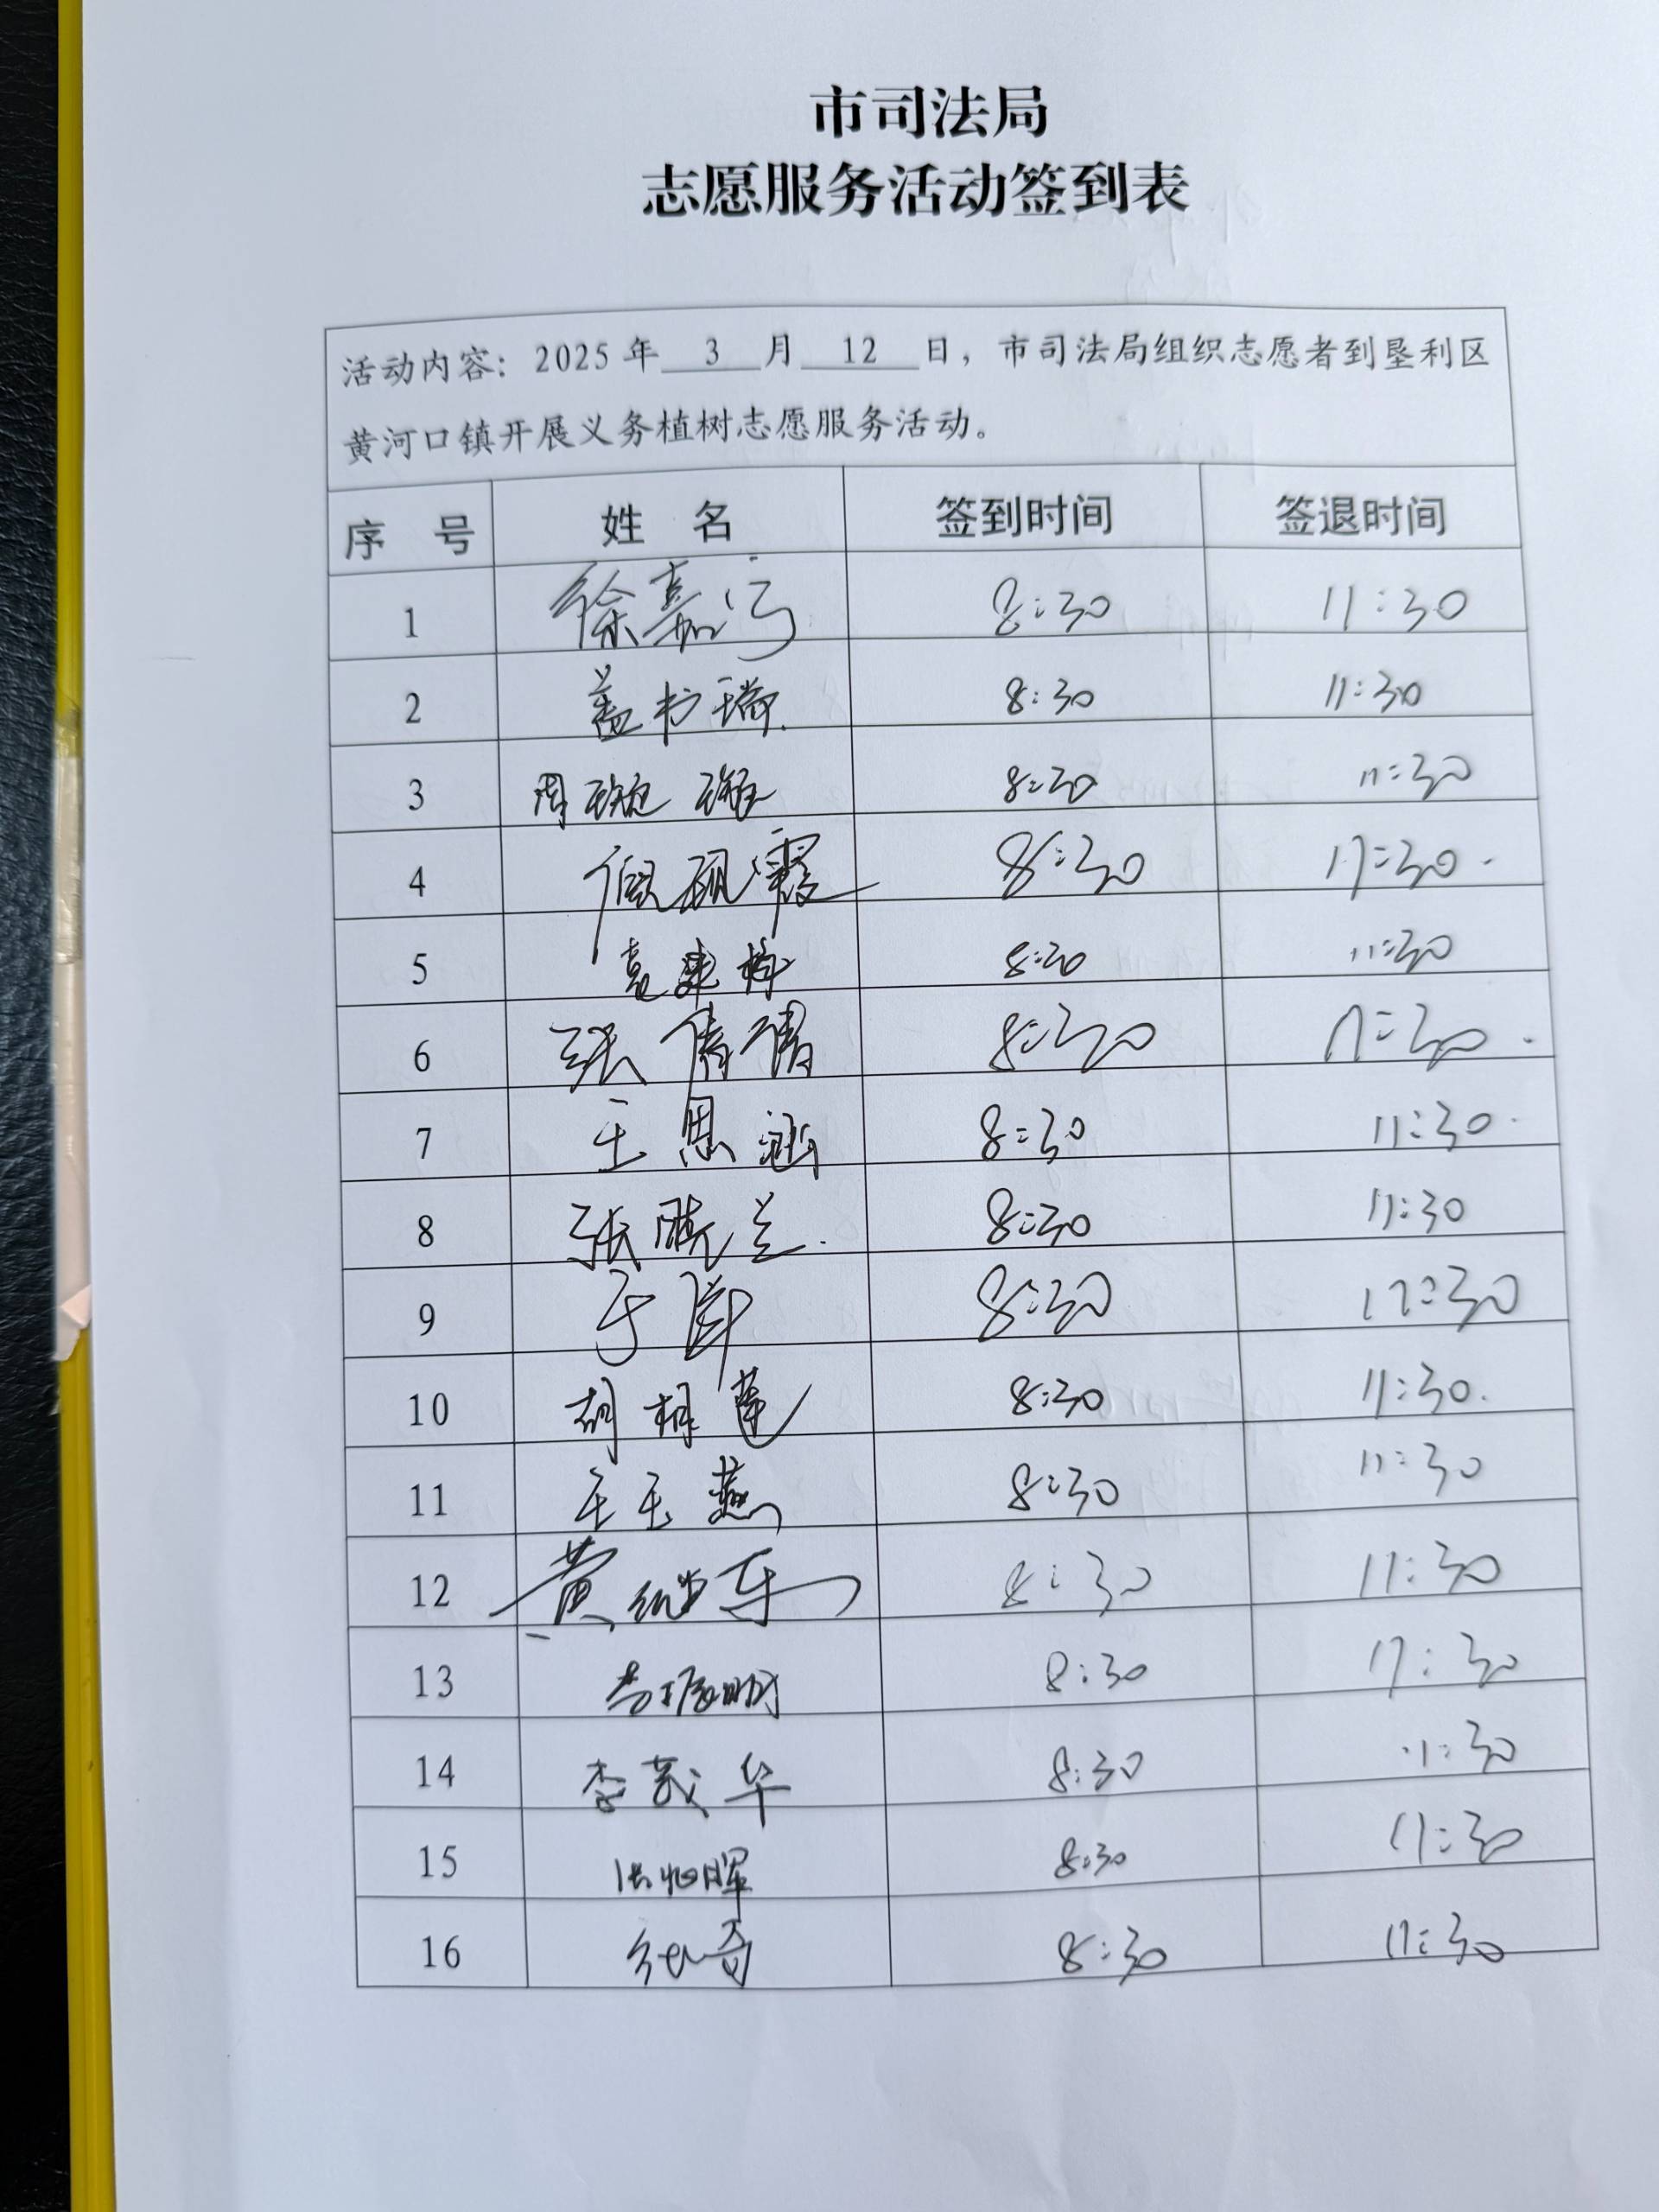 市司法局
志愿服务活动签到表
活动内容：2025年 3 月 12 日，市司法局组织志愿者到垦利区
黄河口镇开展义务植树志愿服务活动。
序 号 姓 名 签到时间 签退时间
1 徐嘉 8:30 11:30
2 盖书瑞 8:30 11:30
3 周 8:30 11:30
4 倪砚霞 8:30 11:30
5 袁建梅 8:30 11:30
6 张倩倩 8:30 11:30
7 王思涵 8:30 11:30
8 张晓兰 8:30 11:30
9 于 8:30 11:30
10 胡相莲 8:30 11:30
11 王玉燕 8:30 11:30
12 黄继东 8:30 11:30
13 8:30 11:30
14 李茂华 8:30 11:30
15 8:30 11:30
16 8:30 11:30